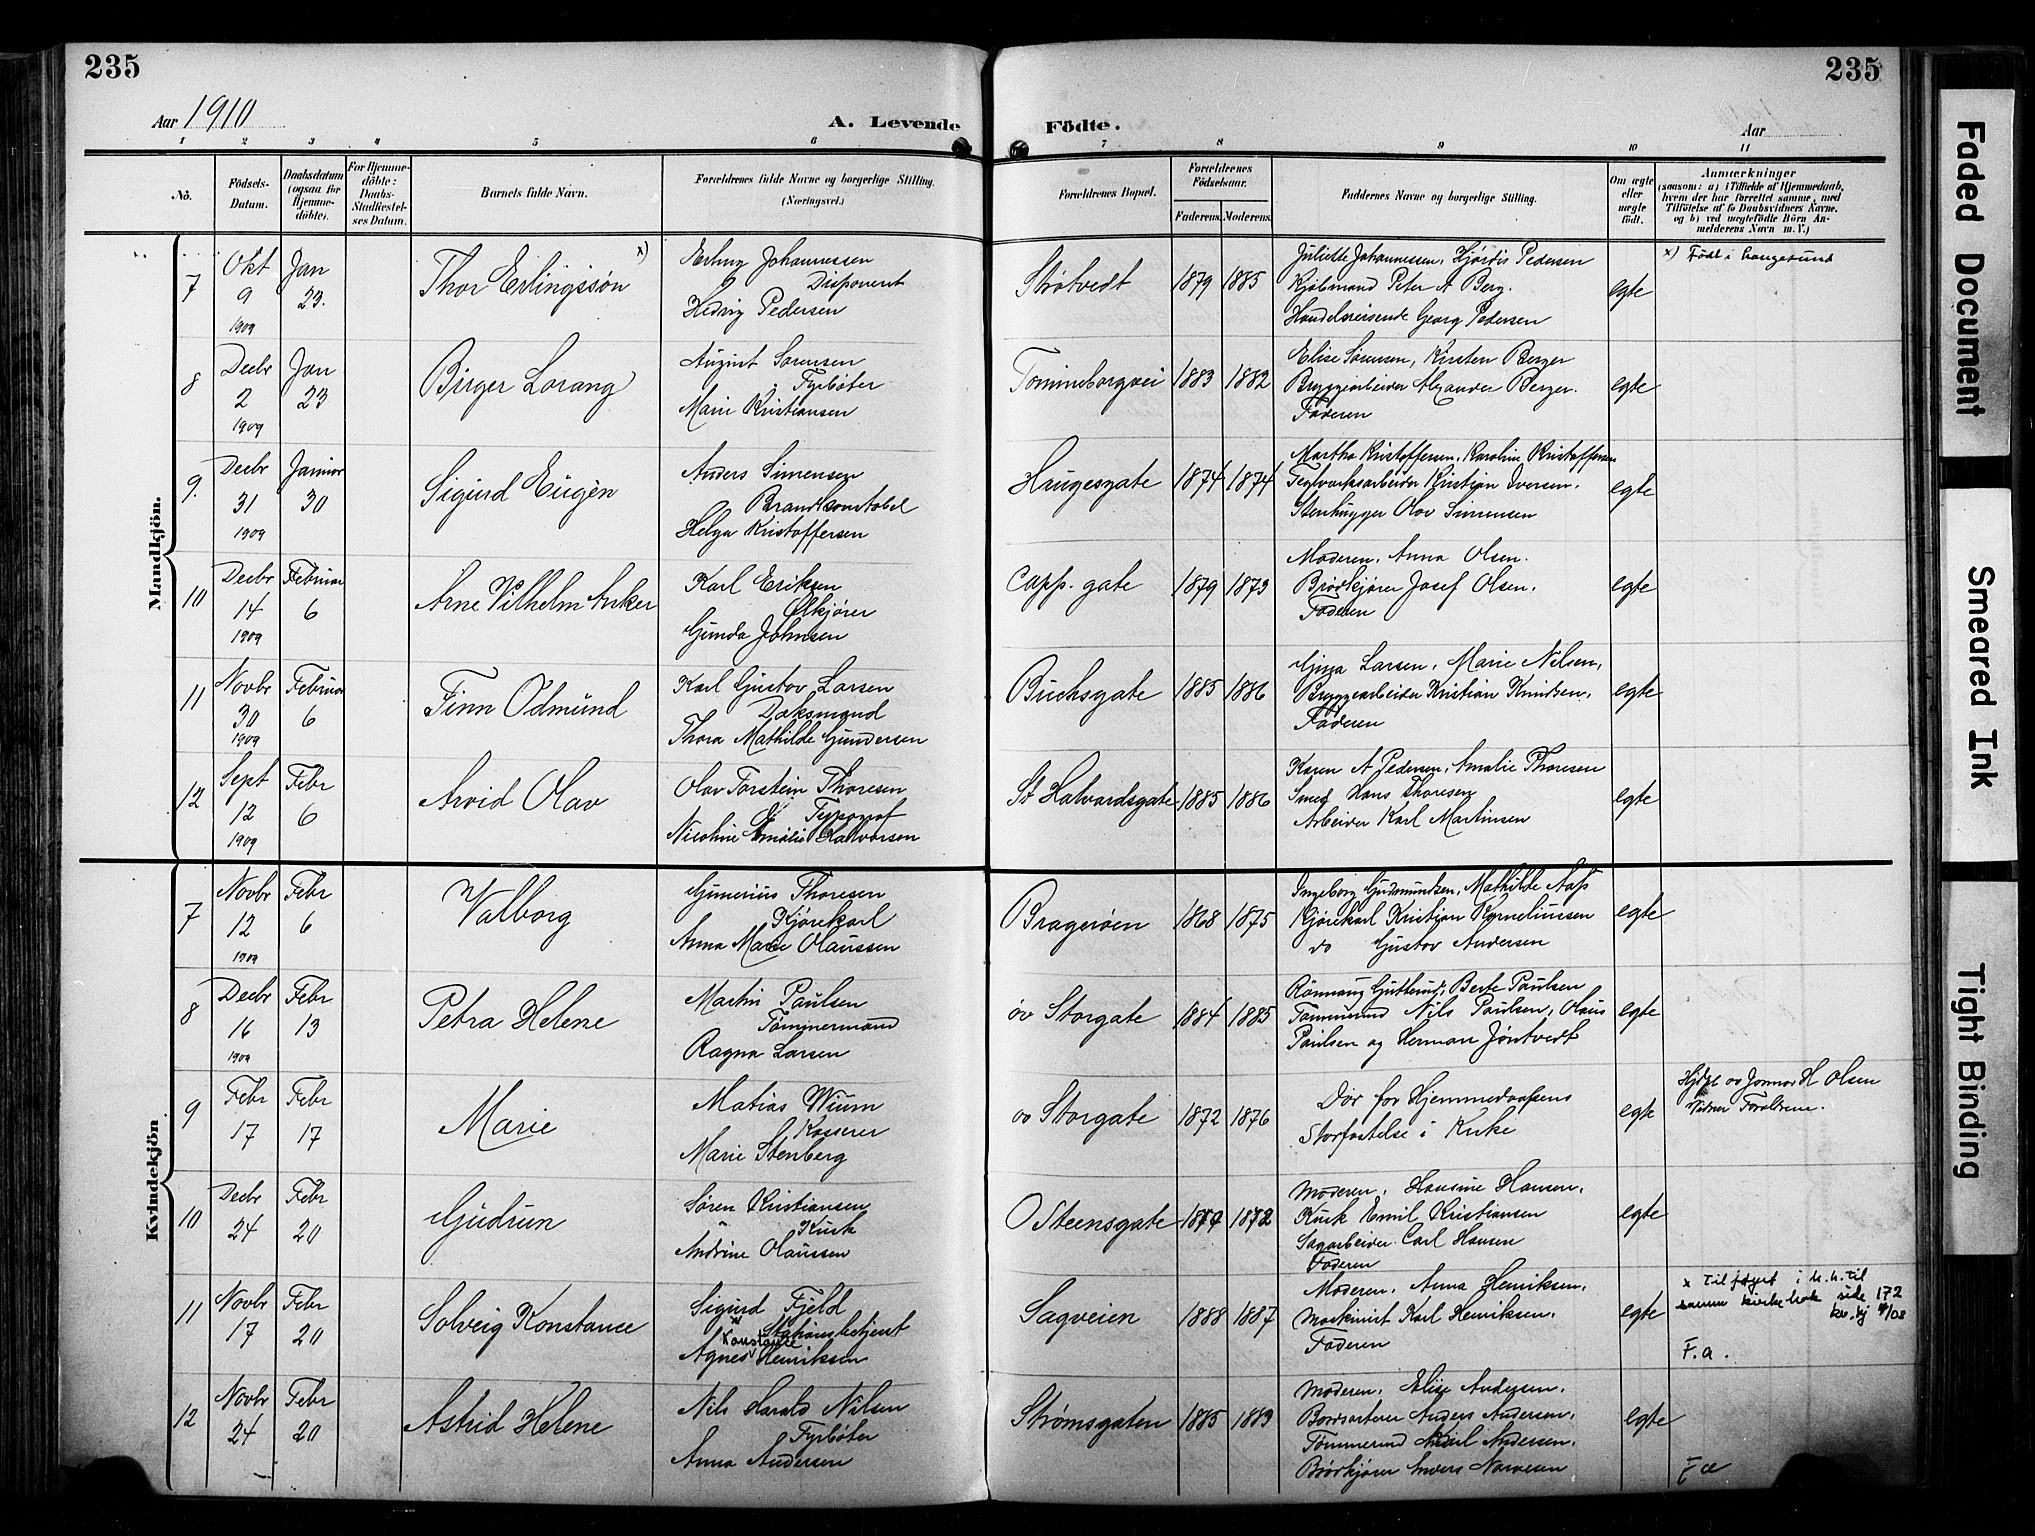 235
235
Aar 1910
A. Levende Födte.
Aar
1 2 3 4 5 6 7 8 9 10 11
No.
Födsels-Datum.
Daabsdatum (ogsaa for Hjemme-döbte).
For Hjemme-döbte: Daabs-Stadfæstel-ses Datum.
Barnets fulde Navn.
Forældrenes fulde Navne og borgerlige Stilling. (Næringsvei.)
Forældrenes Bopæl.
Forældrenes Födselsaar.
Faderens. Moderens.
Faddernes Navne og borgerlige Stilling.
Om ægte eller uægte født.
Anmærkninger
(saasom: a) i Tilfælde af Hjemmedaab, hvem der har forrettet samme, med Tilföielse af to Daabsvidners Navne, og b) ved uægtefödte Börn Anmelderens Navn m. V.)
Mandkjön.
7 Okt 9 1909 Jan 23. Thor Erlingssön x)
Erling Johannessen
Disponent
Hedvig Pedersen
Strøtvedt 1879 1885
Juliette Johannessen, Hjørdis Pedersen
Kjøbmand Peter A Berg.
Handelsreisende Georg Pedersen
egte
x) Født i Langesund
8 Decbr 2 1909 Jan 23 Birger Lorang
August Sørensen
Fyrbøter
Marie Kristiansen
Tømmeborgvei 1883 1882
Elise Sørensen, Kirsten Berger
Bryggearbeider Alexander Berger.
Faderen
egte
9. Decbr 31 1909 Januar 30 Sigurd Eugèn
Anders Simensen
Brandkonstabel
Helga Kristoffersen
Haugesgate 1874 1874
Martha Kristoffersen, Karoline Kristoffersen
Teglverksarbeider Kristian Iversen.
Stenhugger Olav Simensen
egte
10 Decbr 14 1909 Februar 6 Arne Vilhelm Anker
Karl Eriksen
Ølkjører
Gunda Johnsen
Capp. gate 1879 1873
Moderen, Anna Olsen.
Brødkjører Josef Olsen,
Faderen
egte
11 Novbr 30 1909 Februar 6 Finn Odmund
Karl Gustav Larsen
Dæksmand
Thora Mathilde Gundersen
Buchsgate 1885 1886
Larsen, Marie Nelsen,
Bryggearbeider Kristian Knudsen,
Faderen
egte
12 Sept 12 1909 Febr 6 Arvid Olav
Olav Torstein Thoresen
Typograf
Nicoline Emalie Halvorsen
St Halvardsgate 1885 1886
Karen A Pedersen, Amalie Thoresen
Smed Hans Thoresen
Arbeider Karl Martinsen
egte
Kvindekjön
7 Novbr 12 1909 Febr 6 Valborg
Gunerius Thoresen
Kjørekarl
Anna Marie Olaussen
Bragerøen 1868 1875
Ingeborg Gudmundsen, Mathilde Aass
Kjørekarl Kristian Korneliussen
do Gustav Andersen
egte
8 Decbr 16 1909 Febr 13 Petra Helene
Martin Paulsen
Tømmermand
Ragna Larsen
øv Storgate 1884 1885
Rønnaug Gutterud, Berte Paulsen
Tømmermd Nils Paulsen, Olaus
Paulsen og Herman Jøntvedt
egte
9 Febr 17 Febr 17 Marie
Matias Wium
Kasserer
Marie Stenberg
øv Storgate 1872 1876
Dør før Hjemmedaabens
Stadfæstelse i Kirke
egte
Hjdbt av Jormor H Olsen
Vidner Forældrene.
10 Decbr 24 Febr 20 Gudrun
Søren Kristiansen
Kusk
Andrine Olaussen
O Steensgate 1872
Moderen, Hansine Hansen,
Kusk Emil Kristiansen
Sagarbeider Carl Hansen
Faderen
egte
11 Novbr 17 Febr 20 Solveig Konstance
Sigurd Fjeld
Stationsbetjent
x Konstance
Agnes Henriksen
Sagveien 1888 1887
Moderen, Anna Henriksen,
Maskinist Karl Henriksen,
Faderen
egte
x Tilføyet i h.h. til
samme kirkebok side 172
kv.kj 4/08
F.a.
12 Novbr 24 Febr 20 Astrid Helene
Nils Harald Nilsen
Fyrbøter
Anna Andersen
Strømsgaten 1885 1883
Moderen, Elise Andersen,
Bordsorterer Anders Andersen,
Tømmermd Andersen.
Brødkjører Anders Narvesen
egte
F a
Faded Document
Smeared Ink
Tight Binding